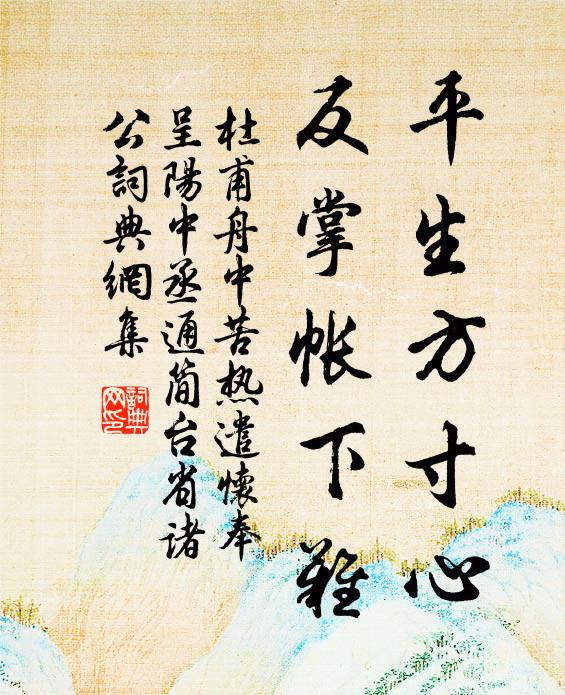 平生方寸心
反掌帐下難
杜甫舟中苦热遣懷奉
呈陽中丞通简台省诸
公詞典網集
詞典
网印